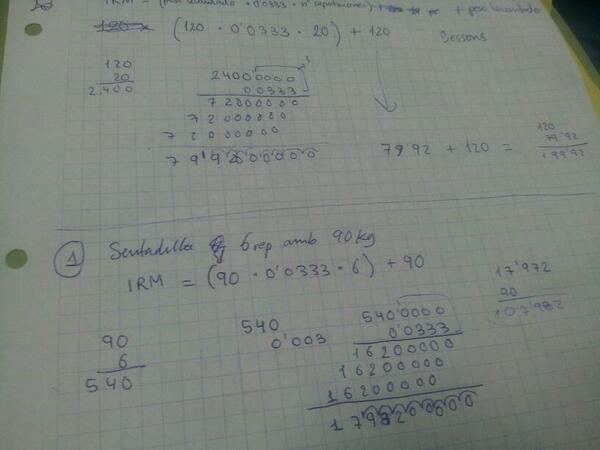 IRM = (peso levantado · 0'0333 · nº repeticiones) + peso levantado
(120 · 0'0333 · 20) + 120
Sessons
120
20
2.400
2400'0000
0'0333
7 2000000
7 2000000
7 2000000
7 9'9200000000
79'92 + 120 =
120
79'92
199'92
1 Sentadilla 6 rep amb 90 kg
IRM = (90 · 0'0333 · 6) + 90
17'972
90
107'982
90
6
540
540
0'003
540'0000
0'0333
16200000
16200000
16200000
1 7'98200000